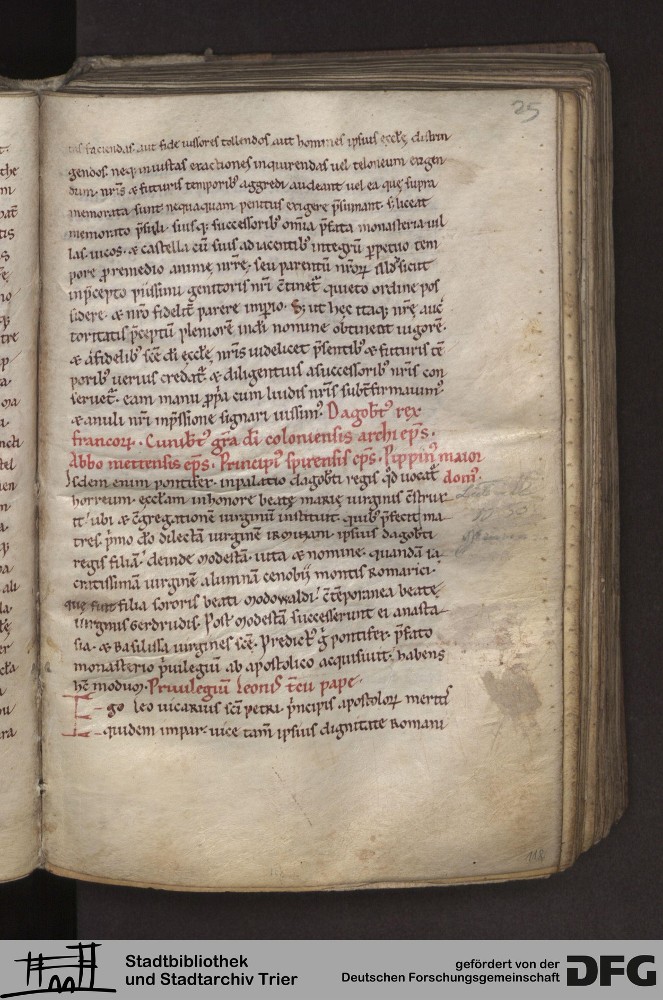 25
tas faciendas aut fideiussores tollendos aut homines ipsius eccłę distrin
gendos. neq; iniustas exactiones inquirendas uel teloneum exigen
dum nr̄is & futuris temporib; aggredi audeant uel ea quę supra
memorata sunt nequaquam penitus exigere p̄sumant. s; liceat
memorato p̄suli. suisq; successorib; om̄ia p̄fata monasteria uil
las. uicos. & castella cū suis adiacentib; integrū ꝑpetuo tem
pore pro remedio animę nr̄e. seu parentū nr̄oꝝ sicut
in p̄cepto piissimi genitoris nr̄i c̄tinetᷣ quieto ordine pos
sidere. & nr̄o fidelit̄ parere imperio. & ut hęc itaq; nr̄ę auc
toritatis p̄ceptū pleniorē in dī nomine obtineat uigorē.
& a fidelib; scę dī eccłę. nr̄is uidelicet p̄sentib; & futuris tē
porib; uerius credatᷣ. & diligentius a successorib; nr̄is con
seruetᷣ. eam manu ꝓpria cum liuidis nr̄is subt̄firmauim;
& anuli nr̄i inp̄ssione signari iussim;. Dagobt; rex
francoꝝ. Cunibt; gr̄a dī coloniensis archi ep̄s.
Abbo mettensis ep̄s. Principi; spirensis ep̄s. Pippin; maior
Isdem enim pontifex. in palatio dagobti regis qd̄ uocatᷣ dom;
horreum. eccłam in honore beatę marię uirginis c̄strux
it. ubi & c̄gregationē uirginū instituit. quib; p̄fecit ma
tres. p̄mo dō dilectā uirginē irminam ipsius dagobti
regis filiā. deinde modestā. uita & nomine. quandā sa
cratissimā uirginē alumnā cenobij montis Romarici.
que fuit filia sororis beati modowaldi. c̄tēporanea beatę
uirginis Gerdrudis. Post modestā successerunt ei anasta
sia. & Basilissa uirgines scę. Predict; g̊ pontifex. p̄fato
monasterio p̄uilegiū ab apostolico acquisiuit. habens
hc̄ modum. Priuilegiū leonis tcii pape.
Ego leo uicarius sc̄i petri. p̄ncipis apostoloꝝ meritis
quidem impar. uice tam̄ ipsius dignitate Romani
118
Stadtbibliothek
und Stadtarchiv Trier
gefördert von der
Deutschen Forschungsgemeinschaft
DFG